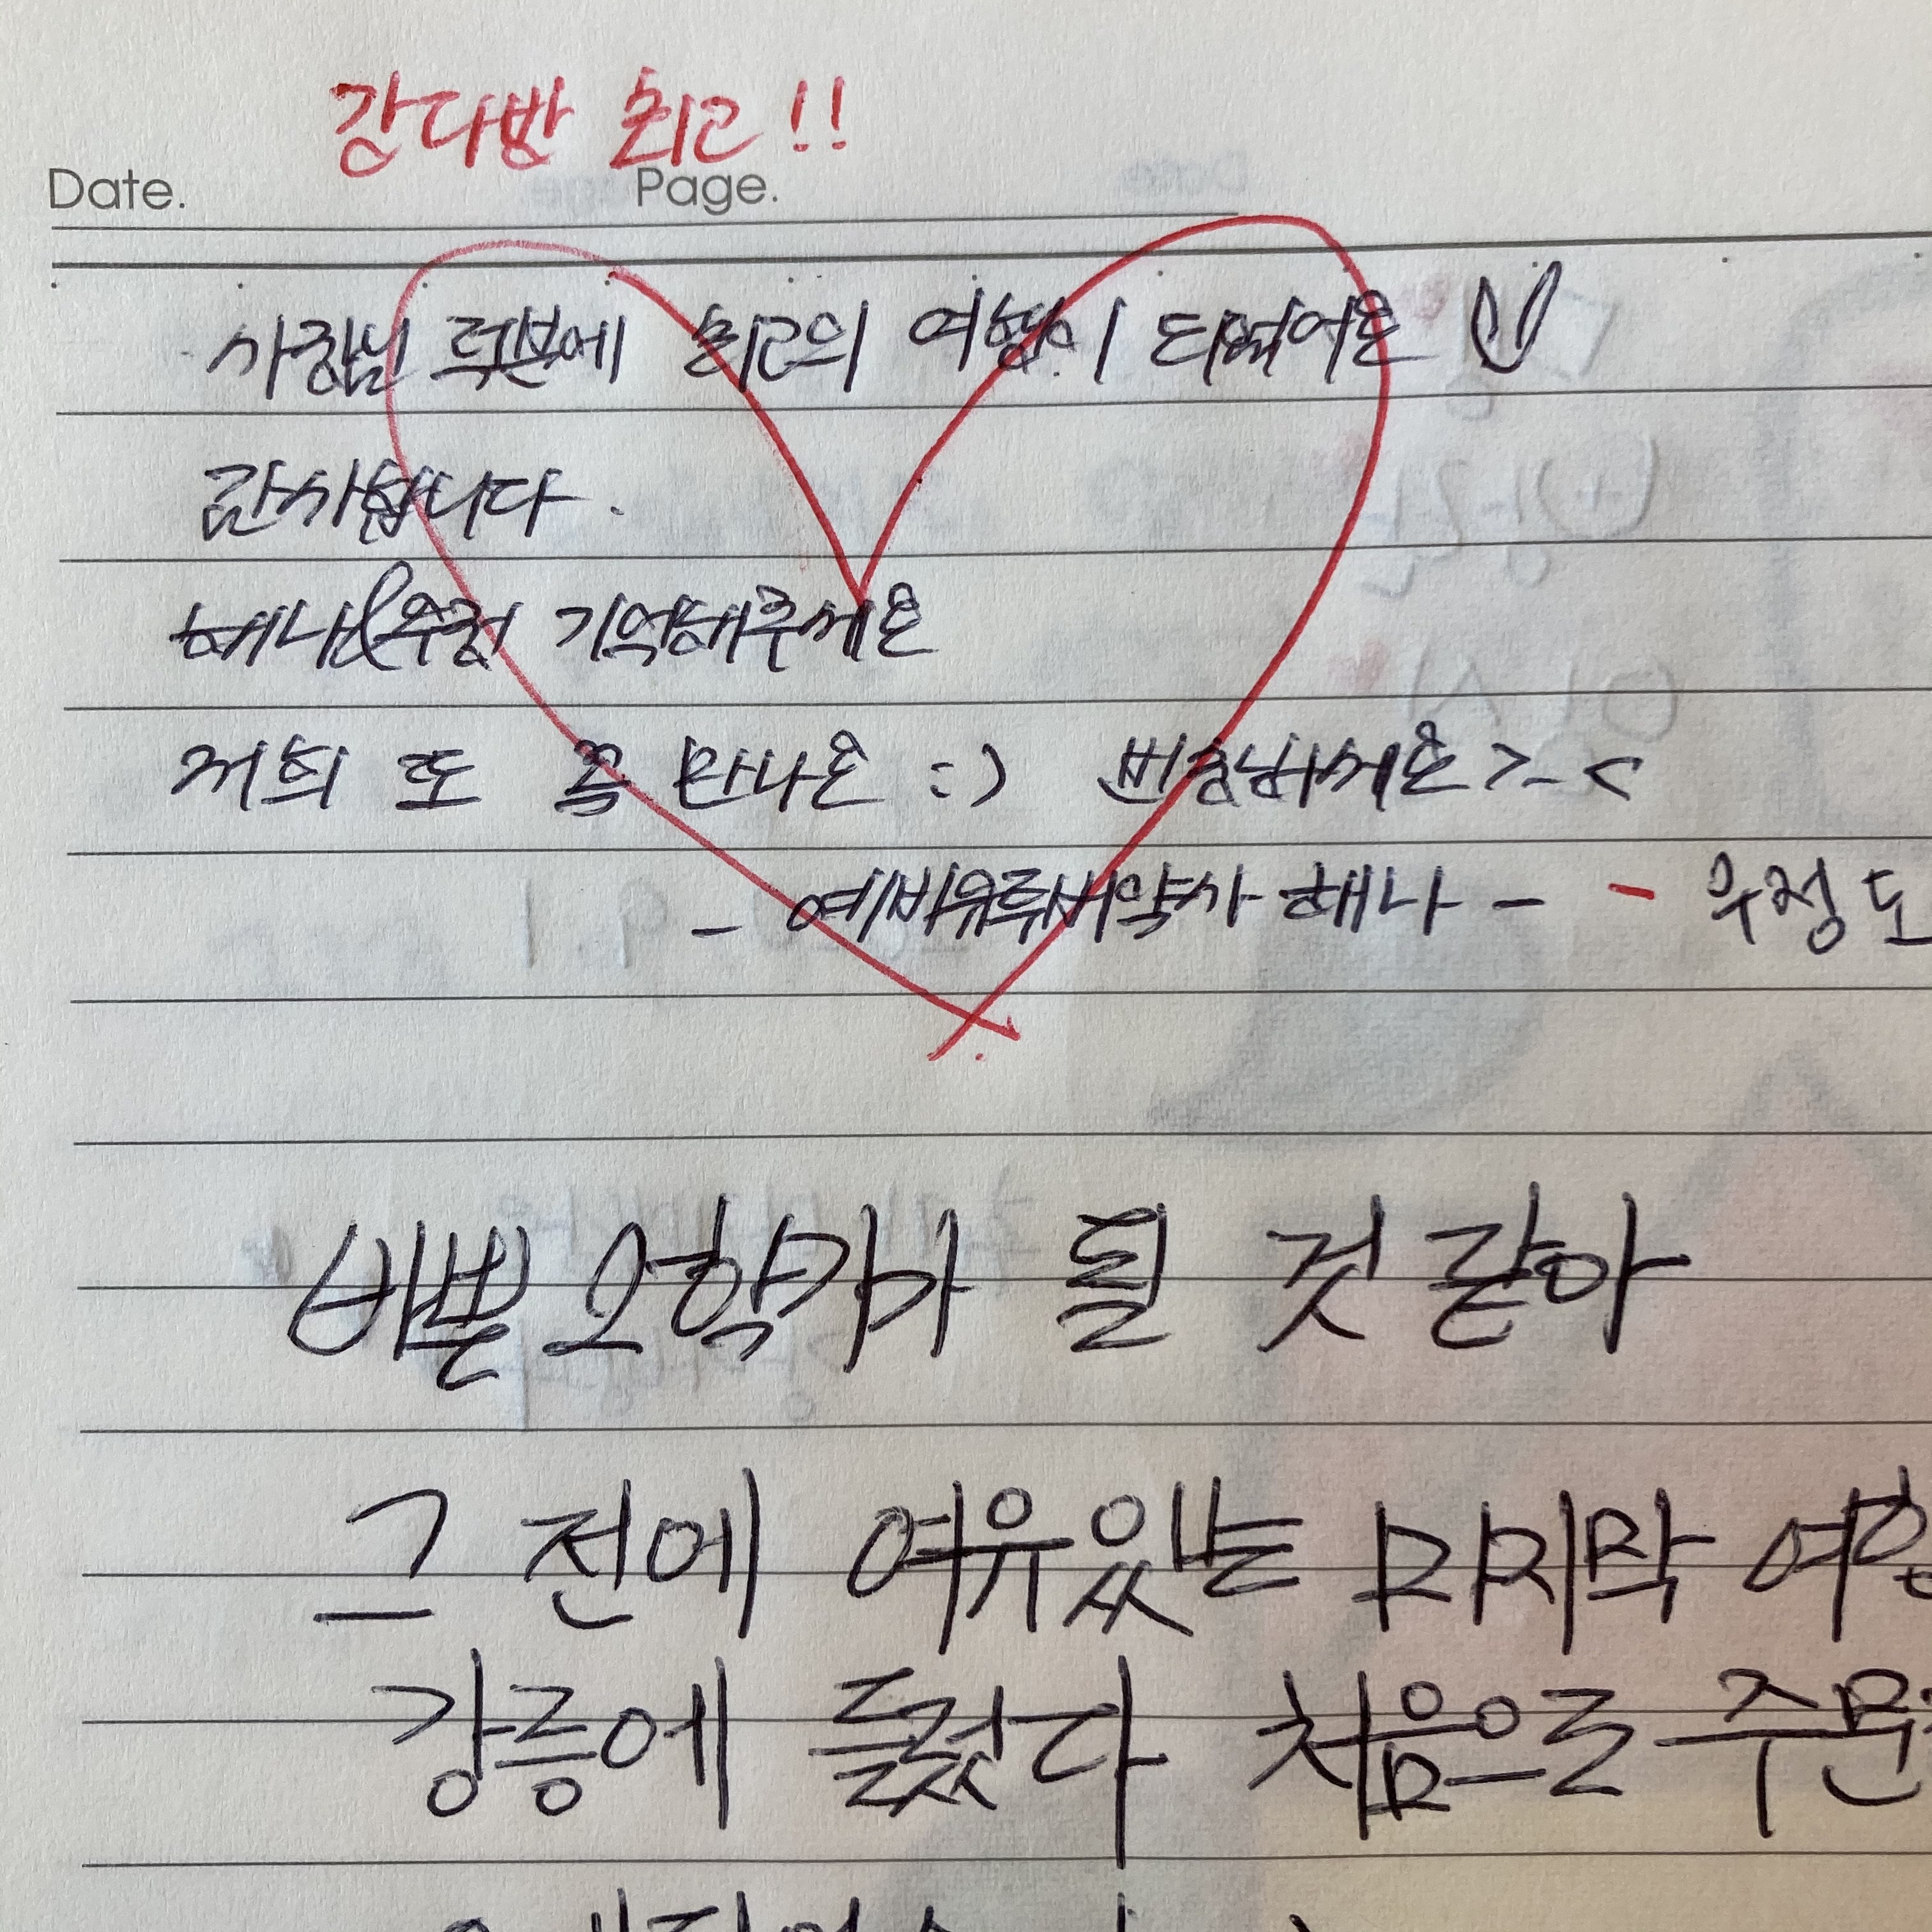 강다방 최고!!
Date. Page.
사장님 덕분에 최고의 여행이 되었어요
감사합니다.
혜나&우정 기억해주세요
저희 또 꼭 만나요 :) 번창하세요 >_<
- 예비유튜버약사 혜나 - - 우정도
바쁜 2학기가 될 것 같아
그 전에 여유있는 마지막
강릉에 들렀다 처음으로